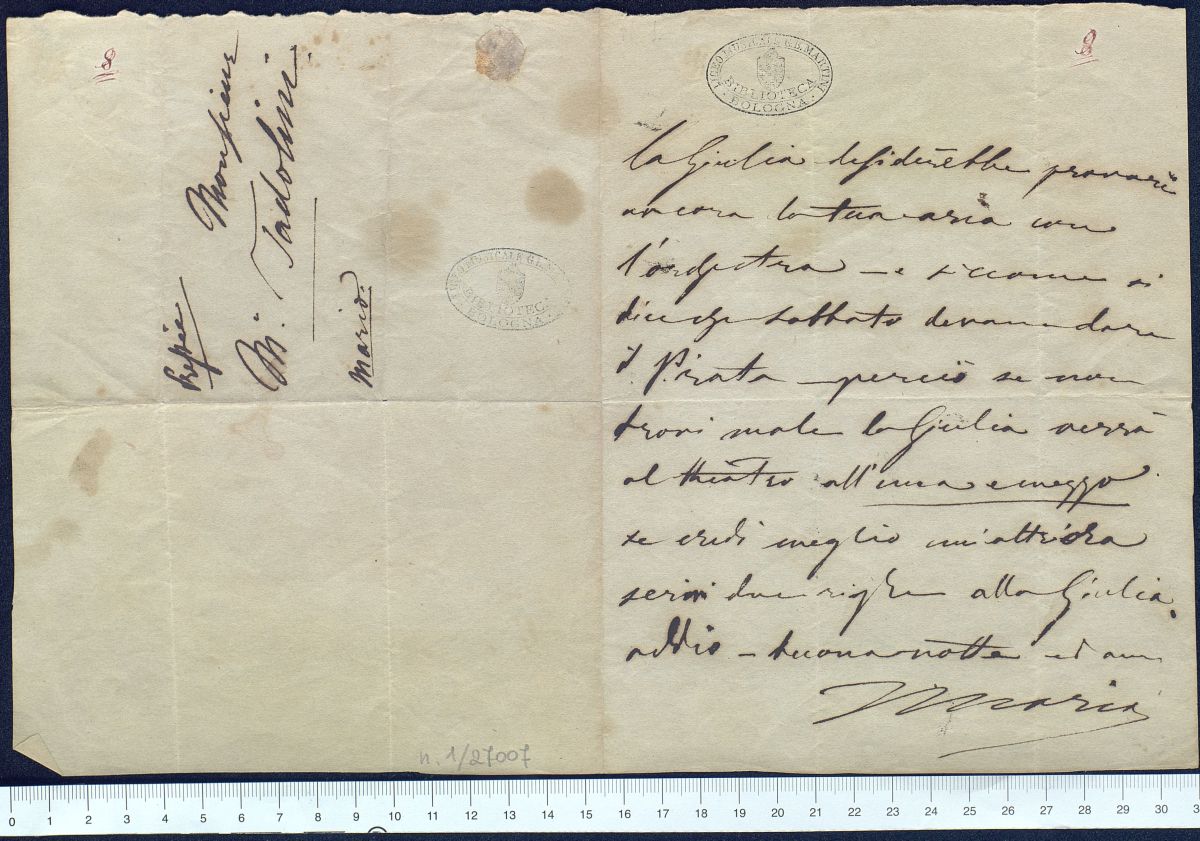 8
Monsieur
M.r Tadolini
Mario.
LICEO MUSICALE G.B. MARTINI
BIBLIOTECA
BOLOGNA
8
LICEO MUSICALE G.B. MARTINI
BIBLIOTECA
BOLOGNA
la Giulia desidererebbe provare
ancora la tua aria con
l'orchestra – e siccome si
dice che sabbato devano dare
il Pirata – perciò se non
trovi male la Giulia verrà
al theatro all'una e mezzo
se credi meglio un'altr'ora
scrivi due righe alla Giulia.
addio – buona notte ed am
Mario
n. 1/27007
0 1 2 3 4 5 6 7 8 9 10 11 12 13 14 15 16 17 18 19 20 21 22 23 24 25 26 27 28 29 30 3